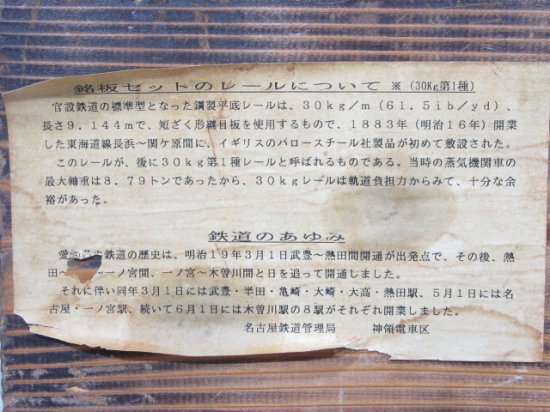 銘板セットのレールについて ※ (30Kg第1種)
官設鉄道の標準型となった鋼製平底レールは、30kg/m(61.5ib/yd)、
長さ9.144mで、短ざく形継目板を使用するもので、1883年(明治16年)開業
した東海道線長浜〜関ケ原間に、イギリスのバロースチール社製品が初めて敷設された。
このレールが、後に30kg第1種レールと呼ばれるものである。当時の蒸気機関車の
最大軸重は8.79トンであったから、30kgレールは軌道負担力からみて、十分な余
裕があった。
鉄道のあゆみ
愛知県の鉄道の歴史は、明治19年3月1日武豊〜熱田間開通が出発点で、その後、熱
田〜 〜一ノ宮間、一ノ宮〜木曽川間と日を追って開通しました。
それに伴い同年3月1日には武豊・半田・亀崎・大崎・大高・熱田駅、5月1日には名
古屋・一ノ宮駅、続いて6月1日には木曽川駅の8駅がそれぞれ開業しました。
名古屋鉄道管理局 神領電車区